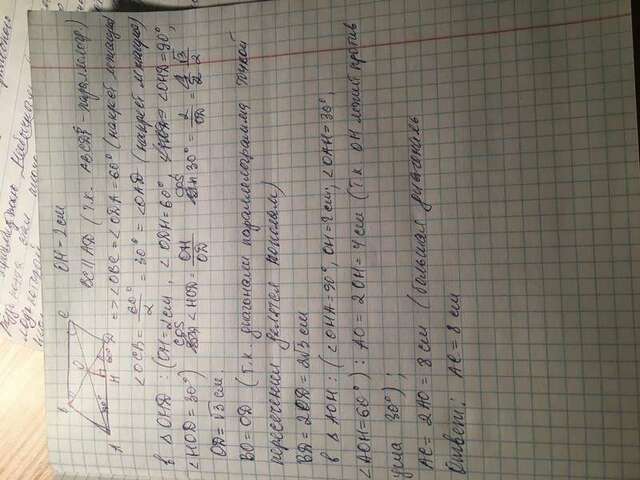 B
C
O
30°
60°
A
H
D
OH = 2 см
BC || AD (т.к. ABCD - параллелогр)
=> ∠OBC = ∠ODA = 60° (накрест лежащие)
∠OCB = 60°/2 = 30° = ∠OAD (накрест лежащие)
В △ OHD : (OH = 2 см, ∠ODH = 60°, ∠OHD = 90°,
∠HOD = 30°) cos ∠HOD = OH/OD cos 30° = 2/OD = √3/2
OD = √3 см.
BO = OD (т.к. диагонали параллелограмма точкой
пересечения делятся пополам)
BD = 2OD = 2√3 см
В △ AOH : (∠OHA = 90°, OH = 2 см; ∠OAH = 30°,
∠AOH = 60°) : AO = 2OH = 4 см (т.к. OH лежит против
угла 30°);
AC = 2AO = 8 см (большая диагональ
Ответ: AC = 8 см